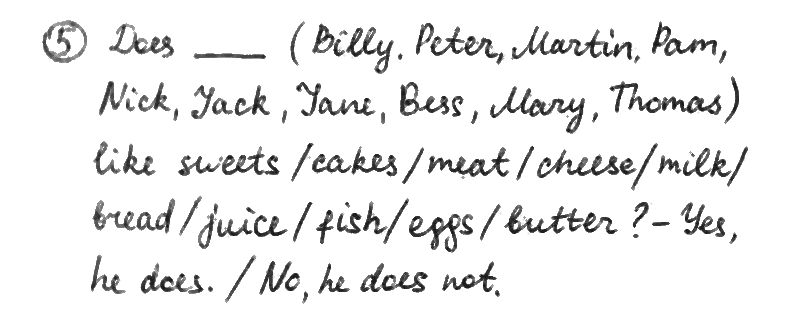 ⑤ Does ____ (Billy. Peter, Martin, Pam,
Nick, Jack, Jane, Bess, Mary, Thomas)
like sweets/cakes/meat/cheese/milk/
bread/juice/fish/eggs/butter? - Yes,
he does. / No, he does not.